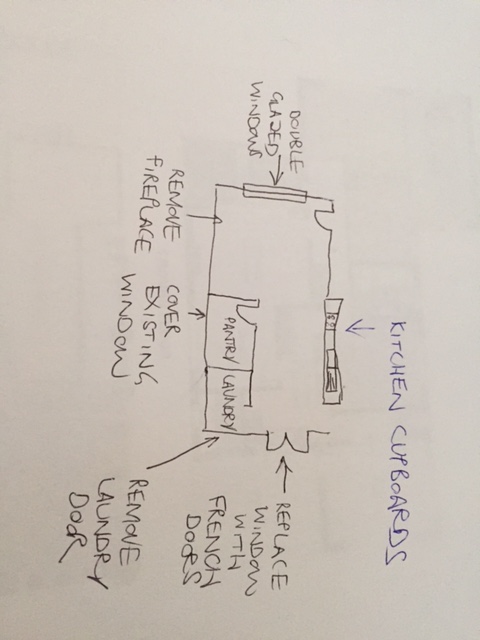 KITCHEN CUPBOARDS
DOUBLE
GLAZED
WINDOW
REPLACE
WINDOW
WITH
FRENCH
DOORS
PANTRY
LAUNDRY
REMOVE
FIREPLACE
COVER
EXISTING
WINDOW
REMOVE
LAUNDRY
DOOR